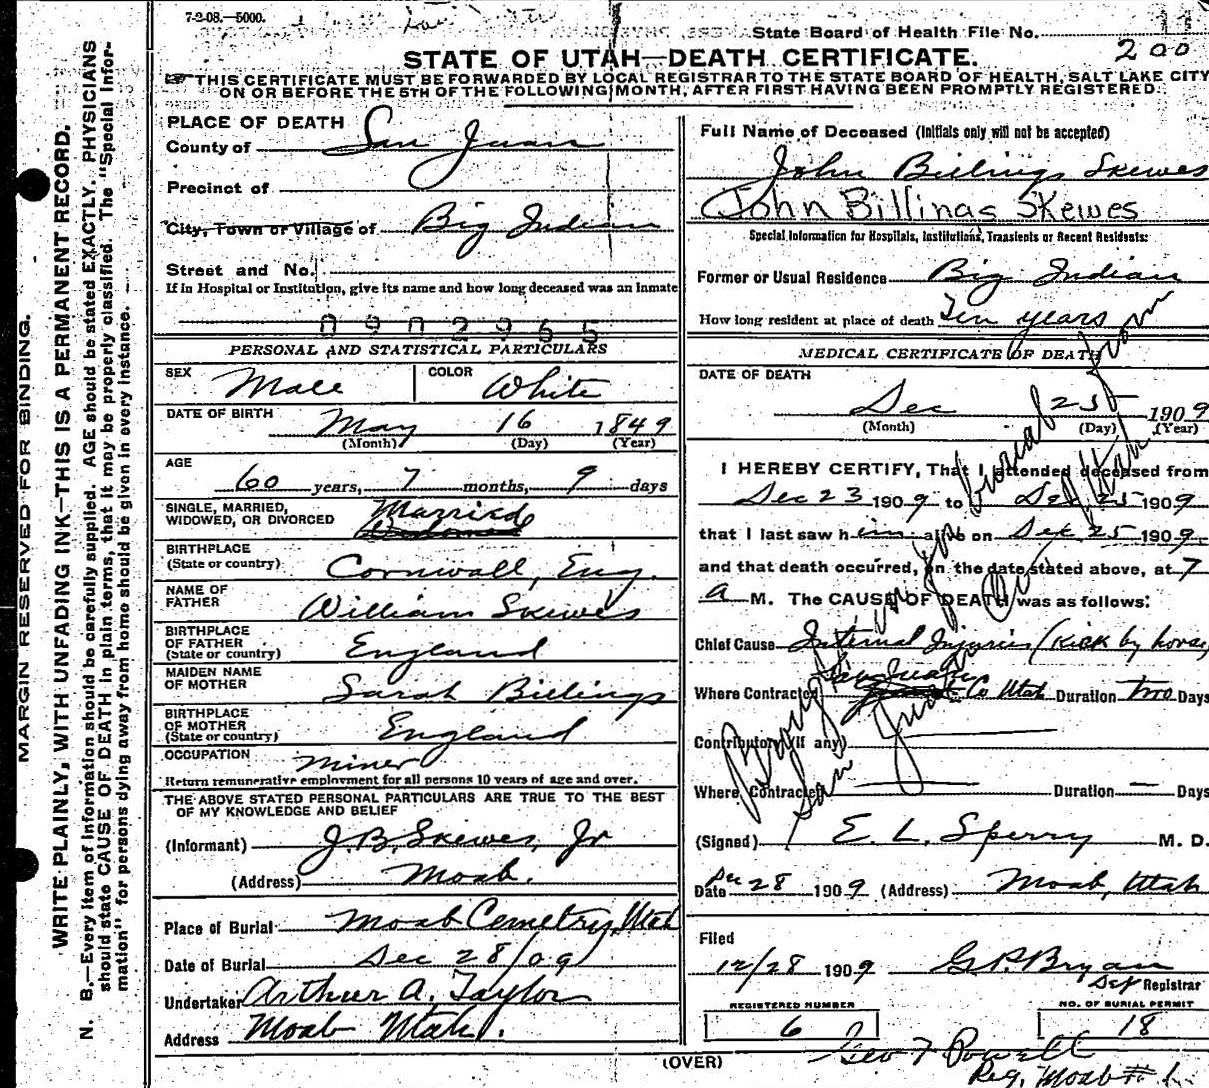 7-2-08.—5000.
State Board of Health File No.
200
STATE OF UTAH—DEATH CERTIFICATE.
THIS CERTIFICATE MUST BE FORWARDED BY LOCAL REGISTRAR TO THE STATE BOARD OF HEALTH, SALT LAKE CITY
ON OR BEFORE THE 5TH OF THE FOLLOWING MONTH, AFTER FIRST HAVING BEEN PROMPTLY REGISTERED.
MARGIN RESERVED FOR BINDING.
WRITE PLAINLY, WITH UNFADING INK—THIS IS A PERMANENT RECORD.
N. B.—Every item of information should be carefully supplied. AGE should be stated EXACTLY. PHYSICIANS
should state CAUSE OF DEATH in plain terms, that it may be properly classified. The "Special Infor-
mation" for persons dying away from home should be given in every instance.
PLACE OF DEATH
County of San Juan
Precinct of
City, Town or Village of Big Indian
Street and No.
If in Hospital or Institution, give its name and how long deceased was an inmate
0902965
PERSONAL AND STATISTICAL PARTICULARS
SEX Male COLOR White
DATE OF BIRTH May 16 1849
(Month) (Day) (Year)
AGE
60 years, 7 months, 9 days
SINGLE, MARRIED,
WIDOWED, OR DIVORCED Married
BIRTHPLACE
(State or country) Cornwall, Eng.
NAME OF
FATHER William Skewes
BIRTHPLACE
OF FATHER
(State or country) England
MAIDEN NAME
OF MOTHER Sarah Billings
BIRTHPLACE
OF MOTHER
(State or country) England
OCCUPATION Miner
Return remunerative employment for all persons 10 years of age and over.
THE ABOVE STATED PERSONAL PARTICULARS ARE TRUE TO THE BEST
OF MY KNOWLEDGE AND BELIEF
(Informant) J.B. Skewes, Jr
(Address) Moab.
Place of Burial Moab Cemetry, Utah
Date of Burial Dec 28/09
Undertaker Arthur A. Taylor
Address Moab Utah.
Full Name of Deceased (Initials only will not be accepted)
John Billings Skewes
John Billings Skewes
Special Information for Hospitals, Institutions, Transients or Recent Residents:
Former or Usual Residence Big Indian
How long resident at place of death Ten years
MEDICAL CERTIFICATE OF DEATH
DATE OF DEATH
Dec 25 1909
(Month) (Day) (Year)
I HEREBY CERTIFY, That I attended deceased from
Dec 23 1909 to Dec 25 1909
that I last saw him alive on Dec 25 1909
and that death occurred, on the date stated above, at 7
a M. The CAUSE OF DEATH was as follows:
Chief Cause Internal Injuries (Kick by horse)
Where Contracted San Juan Co Utah Duration two Days
Contributory (if any)
Where Contracted Duration — Days
(Signed) E. L. Sperry M. D.
Date Dec 28 1909 (Address) Moab, Utah
Brought in for burial from
San Juan Co Utah
Filed
12/28 1909 G P Bryan
Dep Registrar
REGISTERED NUMBER
6
NO. OF BURIAL PERMIT
18
(OVER)
Geo F Powell
Reg. Moab # 1